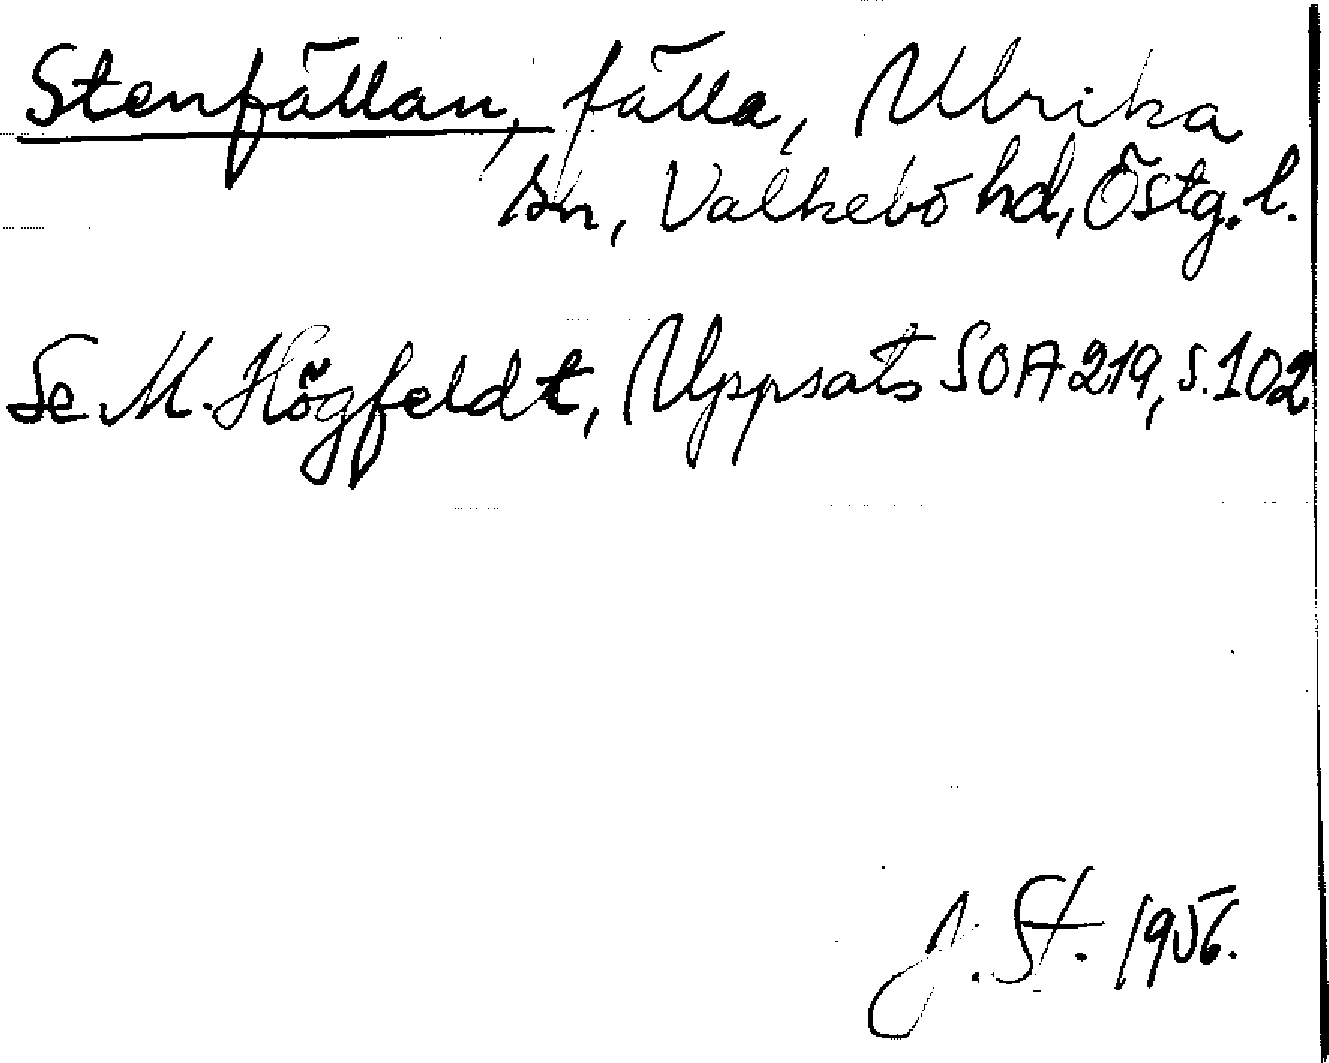 Stenfällan, fälla, Ulrika
sn, Valkebo hd, Östg. l.
Se M. Högfeldt, Uppsats SOA 219, s. 102
J. St. 1956.